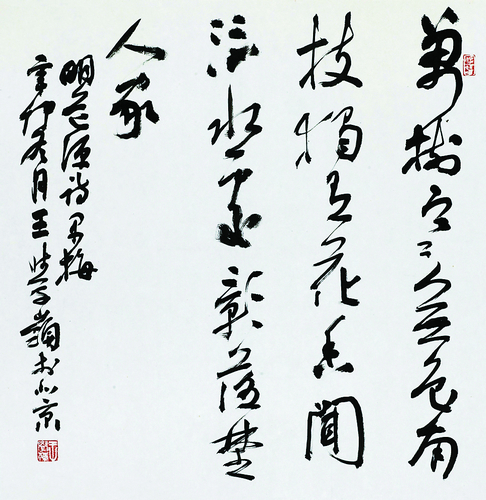 萬樹寒無色南
枝獨有花香聞
流水處影落埜
人家
明道源詩早梅
辛卯冬月王學嶺於北京